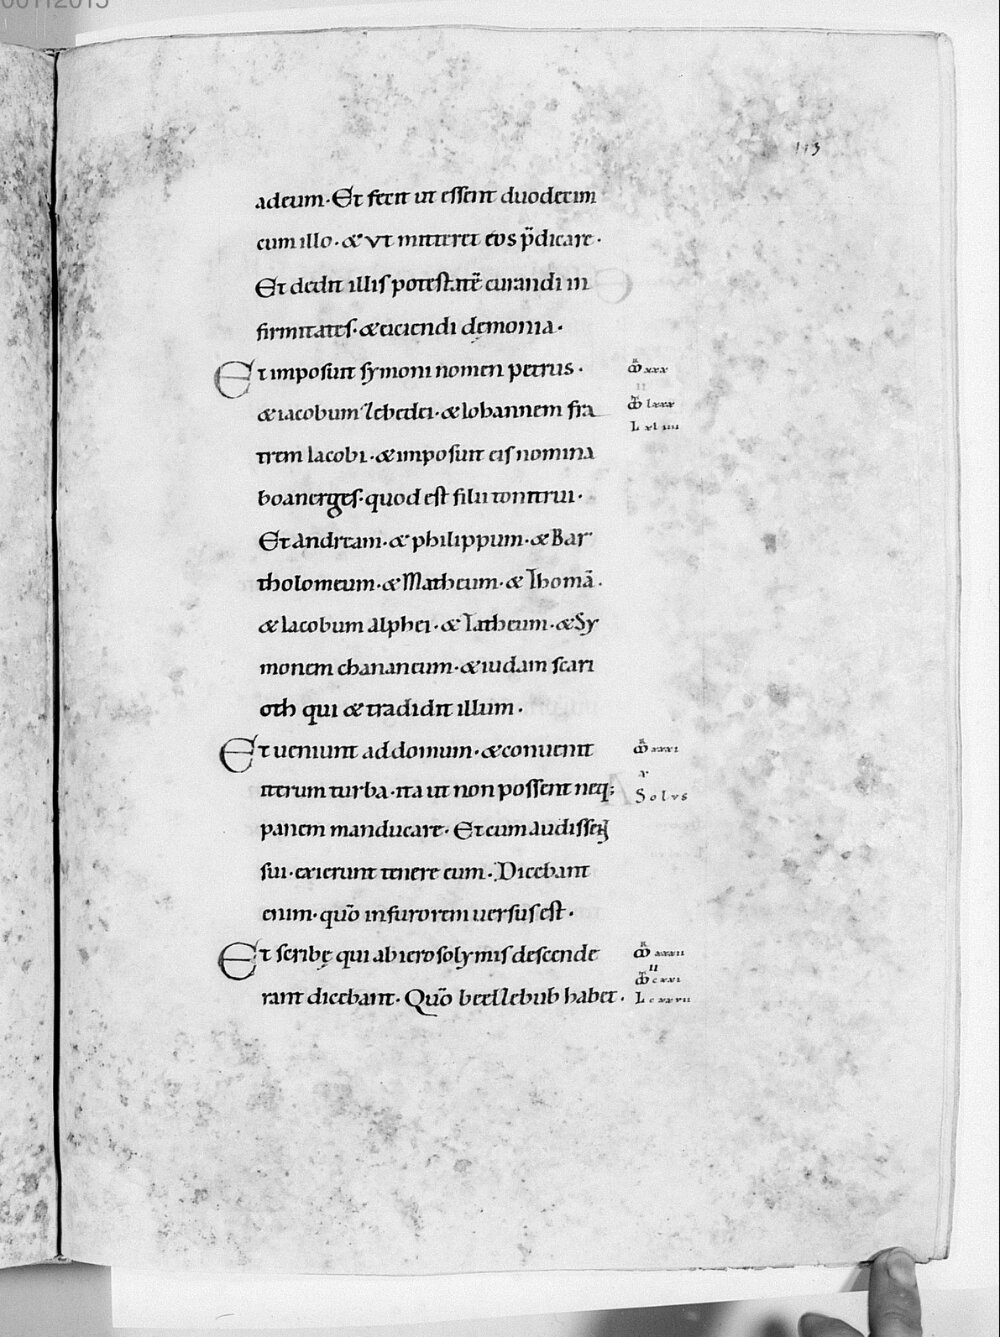 113
adeum·Et fecit ut essent duodecim
cum illo·& ut mitteret eos p̄dicare·
Et dedit illis potestatē curandi in
firmitates·& eiciendi dęmonia·
Et imposuit symoni nomen petrus·
& iacobum zebedei·& Iohannem fra
trem Iacobi·& imposuit eis nomina
boanerges·quod est filii tonitrui·
Et Andream·& philippum·& Bar
tholomeum·& Matheum·& Thomā·
& Iacobum Alphei·& Tatheum·& Sy
monem chananeum·& iudam scari
oth qui & tradidit illum·
Et ueniunt ad domum·& conuenit
iterum turba·ita ut non possent neq;
panem manducare·Et cum audissent
sui·exierunt tenere eum·Dicebant
enim·quō in furorem uersus est·
Et scribę qui ab ierosolymis descende
rant dicebant·Quō beelzebub habet·
xxx
II
lxxx
L xl iiii
xxxi
Solus
xxxii
II
cxxi
L cxxvii